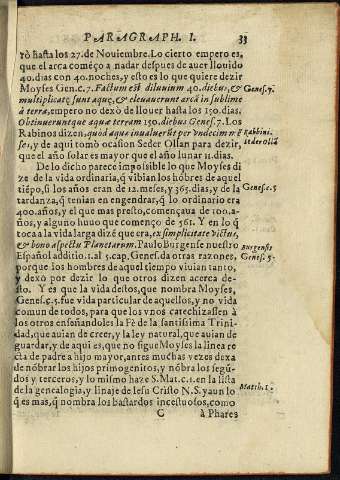 PARAGRAPH. I. 33
rò hasta los 27. de Noviembre. Lo cierto empero es,
que el arca començo a nadar despues de auer llouido
40. dias con 40. noches, y esto es lo que quiere dezir
Moyses Gen. c. 7. Factum est diluvium 40. diebus, &
Genes. 7.
multiplicatę sunt aquę, & eleuauerunt arcã in sublime
à terra, empero no dexò de llouer hasta los 150. dias.
Obtinueruntque aquę terram 150. diebus Genes. 7. Los
Rabinos dizen, quòd aqua inualuerũt per vndecim mẽ
Rabbini.
ses, y de aqui tomò ocasion Seder Ollan para dezir,
seder ollã
que el año solar es mayor que el año lunar 11. dias.
De lo dicho parece impossible lo que Moyses di
ze de la vida ordinaria, q̃ vibian los hõbres de aquel
tiẽpo, si los años eran de 12. meses, y 365. dias, y de la
Genes. c. 5
tardanza, q̃ tenian en engendrar, q̃ lo ordinario era
400. años, y el que mas presto, començaua de 100. a-
ños, y alguno huuo que començo de 561. Y en lo q̃
toca a la vida larga dizẽ que era, ex simplicitate victus,
& bono aspectu Planetarum. Paulo Burgense nuestro
Burgensis
Español additio. 1. al 5. cap. Genes. da otras razones,
Genes. 5.
porque los hombres de aquel tiempo viuian tanto,
y dexò por dezir lo que otros dizen acerca de-
sto. Y es que la vida destos, que nombra Moyses,
Genes. c. 5. fue vida particular de aquellos, y no vida
comun de todos, para que los vnos catechizassen à
los otros enseñandoles la Fè de la santissima Trini-
dad, que auian de creer, y la ley natural, que auian de
guardar, y de aqui es, que no sigue Moyses la linea re
cta de padre a hijo mayor, antes muchas vezes dexa
de nõbrar los hijos primogenitos, y nõbra los segũ-
dos y terceros, y lo mismo haze S. Mat. c. 1. en la lista
de la genealogia, y linaje de Iesu Cristo N. S. y aun lo
Matth. 1.
q̃ es mas, q̃ nombra los bastardos incestuosos, como
C à Phares